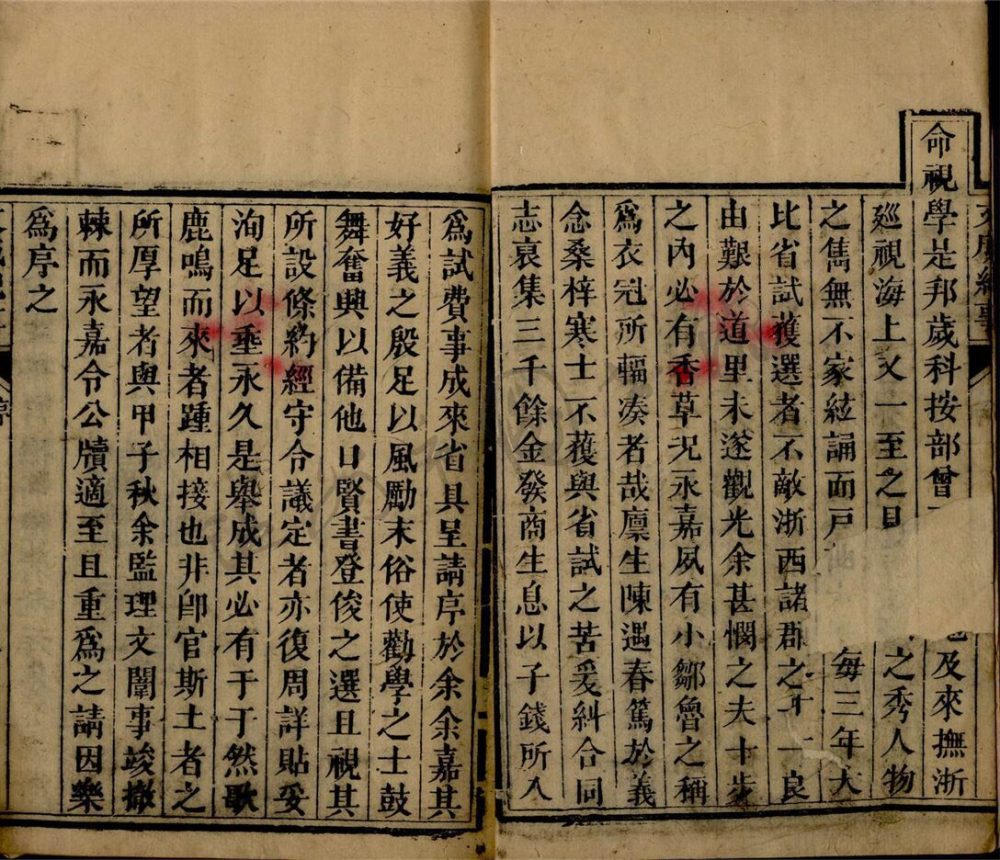 命視學是邦歲科按部曾及來撫浙
廵視海上又一至之之秀人物
之雋無不家絃誦而戸每三年大
比省試獲選者不敵浙西諸郡之十一良
由艱於道里未遂觀光余甚憫之夫十步
之內必有香草况永嘉夙有小鄒魯之稱
爲衣冠所輻凑者哉廪生陳遇春篤於義
念桑梓寒士不獲與省試之苦爰糾合同
志裒集三千餘金發商生息以子錢所入
爲試費事成來省具呈請序於余余嘉其
好義之殷足以風勵末俗使勸學之士鼓
舞奮興以備他日賢書登俊之選且視其
所設條約經守令議定者亦復周詳貼妥
洵足以垂永久是舉成其必有于于然歌
鹿鳴而來者踵相接也非卽官斯土者之
所厚望者與甲子秋余監理文闈事竣撤
棘而永嘉令公牘適至且重爲之請因樂
爲序之